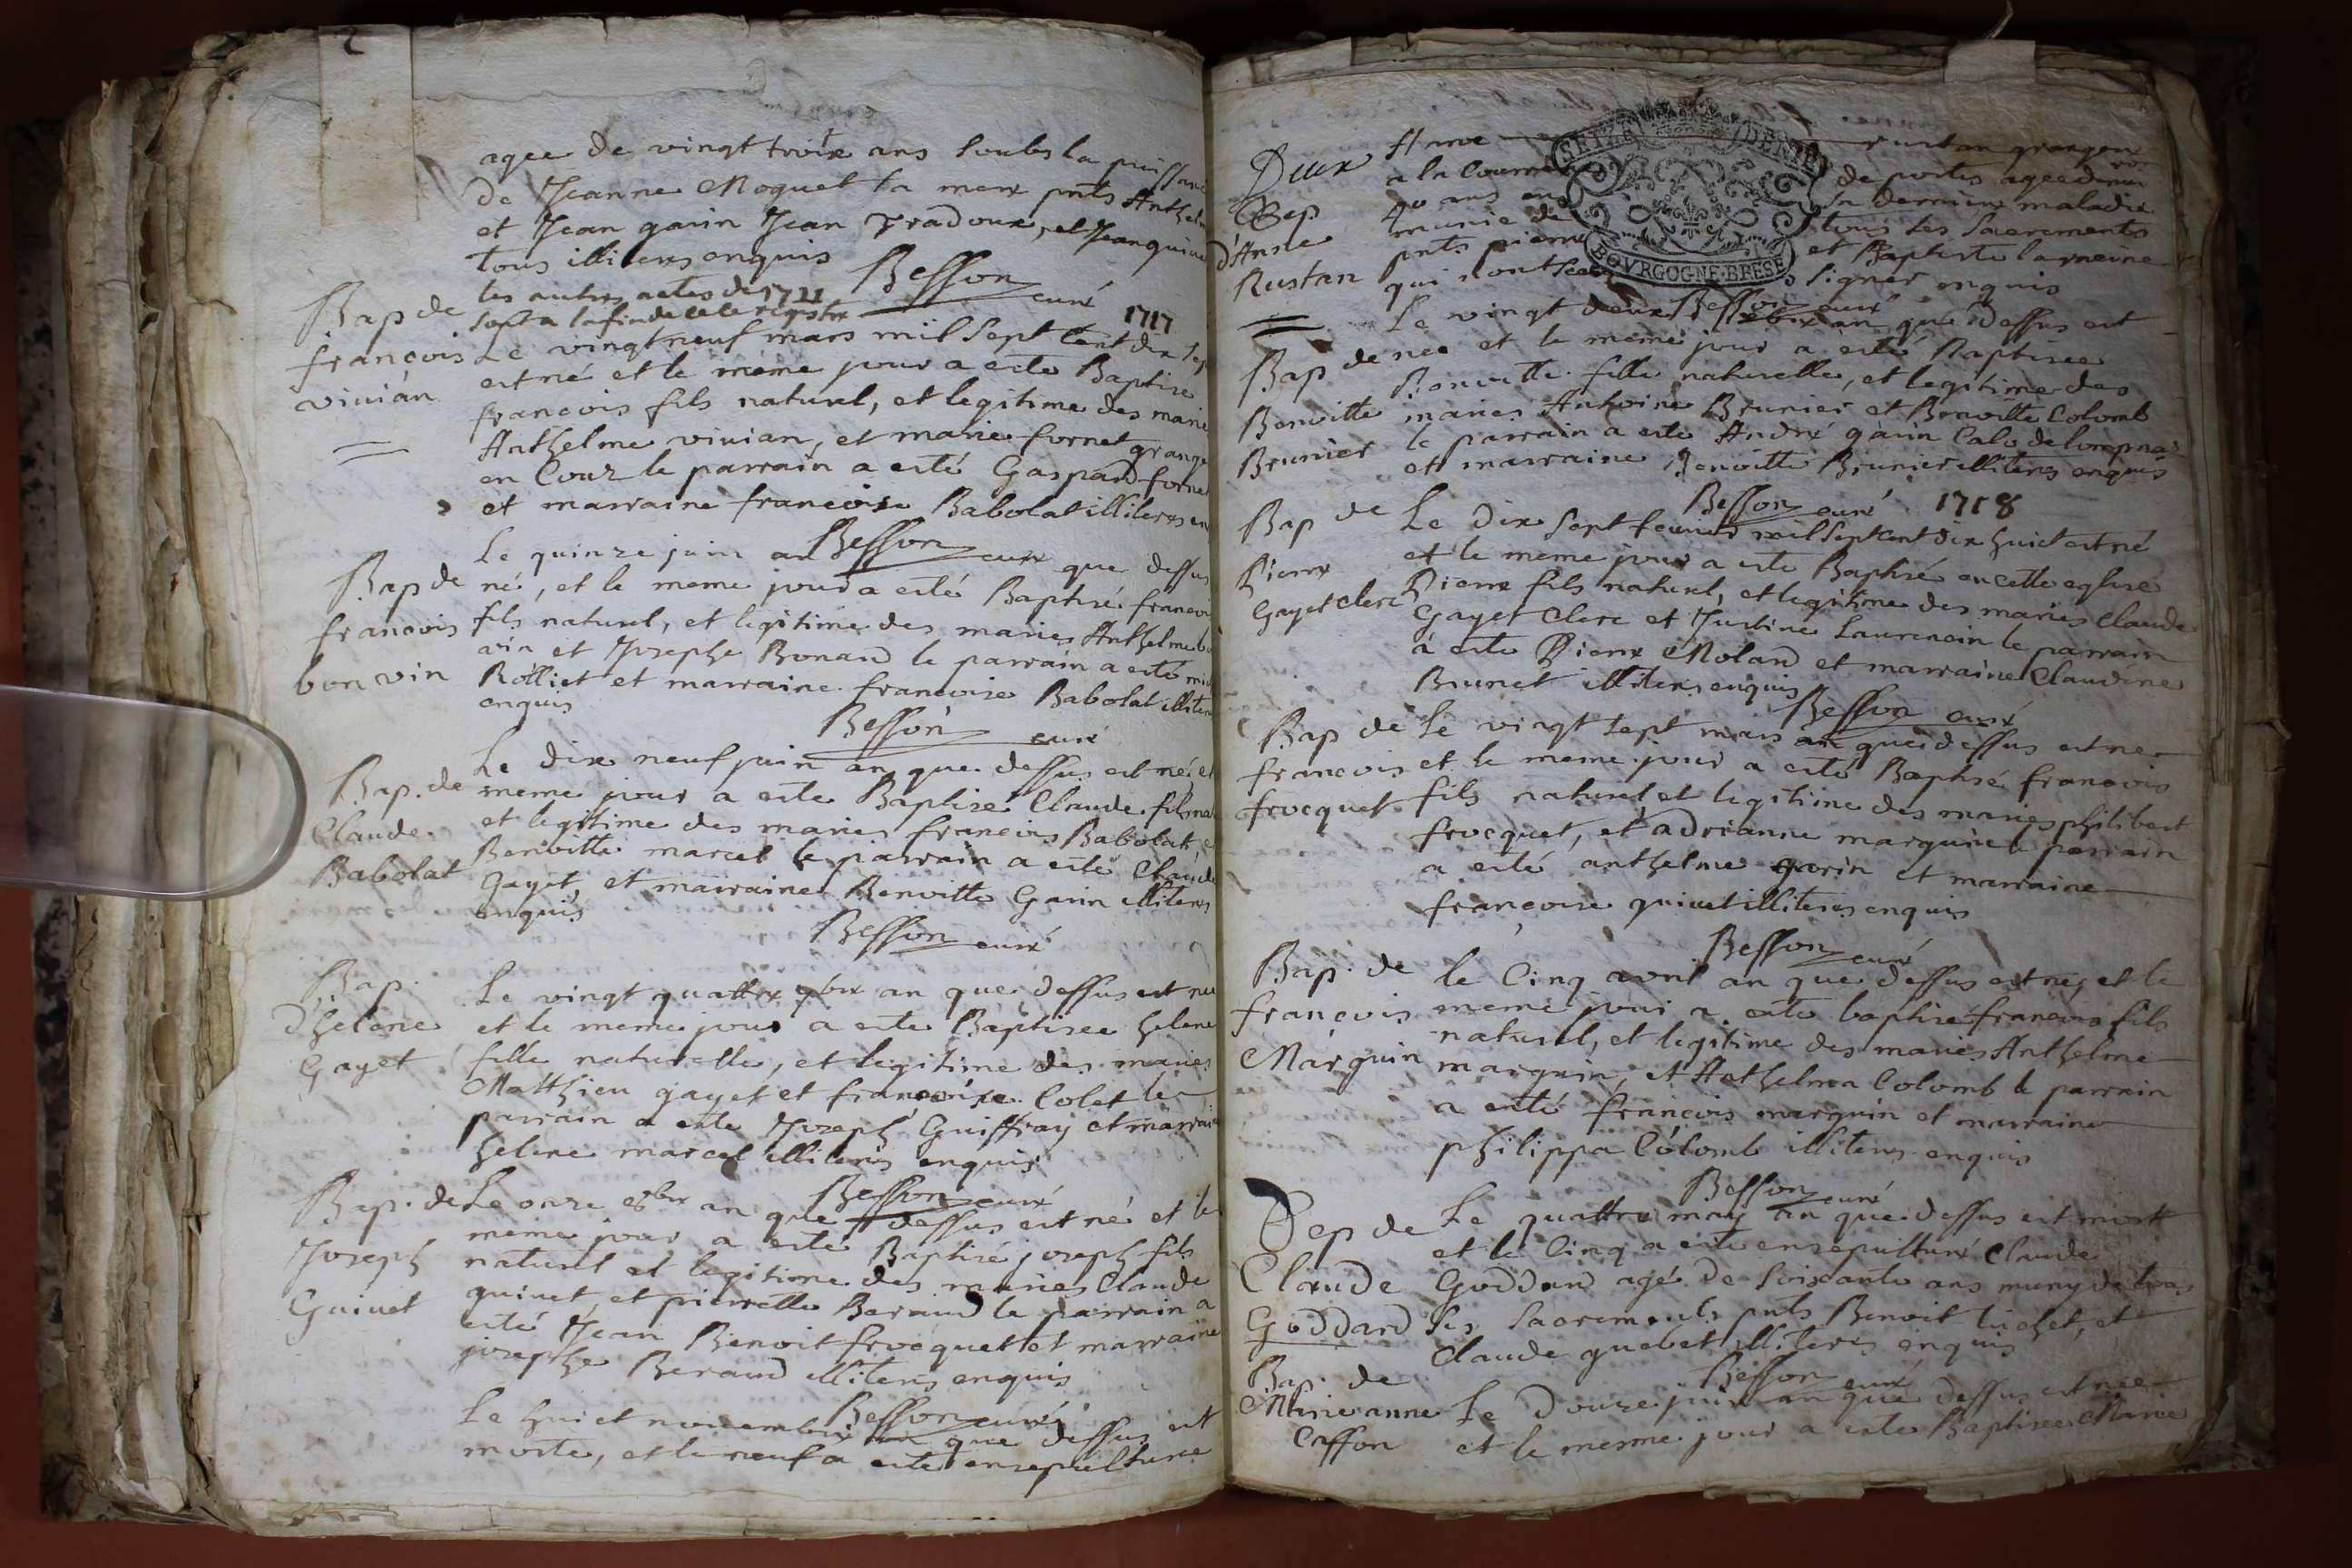 agee de vingt troix ans soubs la puissan
de Jeanne Moquet sa mere pnts Anthel
et Jean garin Jean Tradoux, et Jean quine
tous illiters enquis
Besson curé
les autres actes de 1721
sont a la fin de ce registre
1717
Bap de
françois
vivian
Le vingt neuf mars mil sept cent dix sep
est né et le méme jour a esté Baptisé
francois fils naturel, et legitime des marie
Anthelme vivian, et marie fornet grange
en Cour le parrain a esté Gaspard forne
et marraine francoise Babolat illiters en
Besson curé
Bap de
francois
bonvin
Le quinze juin an que dessus
né, et le meme jour a esté Baptisé francoi
fils naturel, et legitime des maries Anthelme bo
vin et Josephe Bonard le parrain a esté mi
Rolliet et marraine francoise Babolat illiter
enquis
Besson curé
Bap. de
Claude
Babolat
Le dix neuf juin an que dessus est né, et
meme jour a este Baptisé Claude fils na
et legitime des maries francois Babolat, e
Benoitte marcel le parrain a esté Claude
Gayet, et marraine Benoitte Garin illiters
enquis
Besson curé
Bap.
d'helene
Gayet
Le vingt quattre 7bre an que dessus est née
et le meme jour a este Baptisee helene
fille naturelle, et legitime des maries
Matthieu gayet et francoise Colet le
parrain a este Joseph Guiffray et marrai
helene marcel illiters enquis
Besson curé
Bap. de
Joseph
Guinet
Le onze 8bre an que dessus est né et le
meme jour a esté Baptisé joseph fils
naturel et legitime des maries Claude
quinet et pierrette Beraud le parrain a
esté Jean Benoit frocquet et marraine
josephe Beraud illiters enquis
Besson curé
Le huict novembre an que dessus est
morte, et le neuf a este ensepulturee
Deux
Sep
d'Anne
Rustan
Anne rustan grangere
a la Cour de portes agee denviron
40 ans en sa derniere maladie
munie de tous les sacrements
pnts pierre et Baptiste larmeine
qui nont sceu signer enquis
Besson curé
Bap de
Benoitte
Brunier
Le vingt deux xbre an que dessus est
nee et le meme jour a esté Baptisee
Benoitte fille naturelle, et legitime des
maries Antoine Brunier et Benoitte Colomb
le parrain a este André garin Calo de lompnas
et marraine Benoitte Brunier illiters enquis
Besson curé
1718
Bap de
Pierre
Gayet Clerc
Le dix sept fevrier mil sept cent dix huict est né
et le meme jour a este Baptisé en cette eglise
Pierre fils naturel, et legitime des maries Claude
Gayet Clerc et Justine Laurencin le parrain
a este Pierre Moland et marraine Claudine
Brunet illiters enquis
Besson curé
Bap de
francois
frocquet
Le vingt sept mars an que dessus est né
et le meme jour a esté Baptisé francois
fils naturel et legitime des maries philibert
frocquet, et adrianne marguin le parrain
a esté anthelme garin et marraine
françoise quinet illiters enquis
Besson curé
Bap. de
françois
Marguin
le Cinq avril an que dessus est né, et le
meme jour a esté baptisé francois fils
naturel, et legitime des maries Anthelme
marguin, et Anthelmea Colomb le parrain
a esté françois marguin et marraine
philippa Colomb illiters enquis
Besson curé
Sep de
Claude
Goddard
Le quattre may an que dessus est mort
et le Cinq a esté ensepulturé Claude
Goddard agé de soixante ans muny de tous
les sacrements pnts Benoit luchet, et
Claude guebet illiters enquis
Besson curé
Bap. de
Marie anne
Casson
Le douze juin an que dessus est nee
et le mesme jour a este Baptisee Marie
SEIZE DENIE
BOVRGOGNE·BRESE